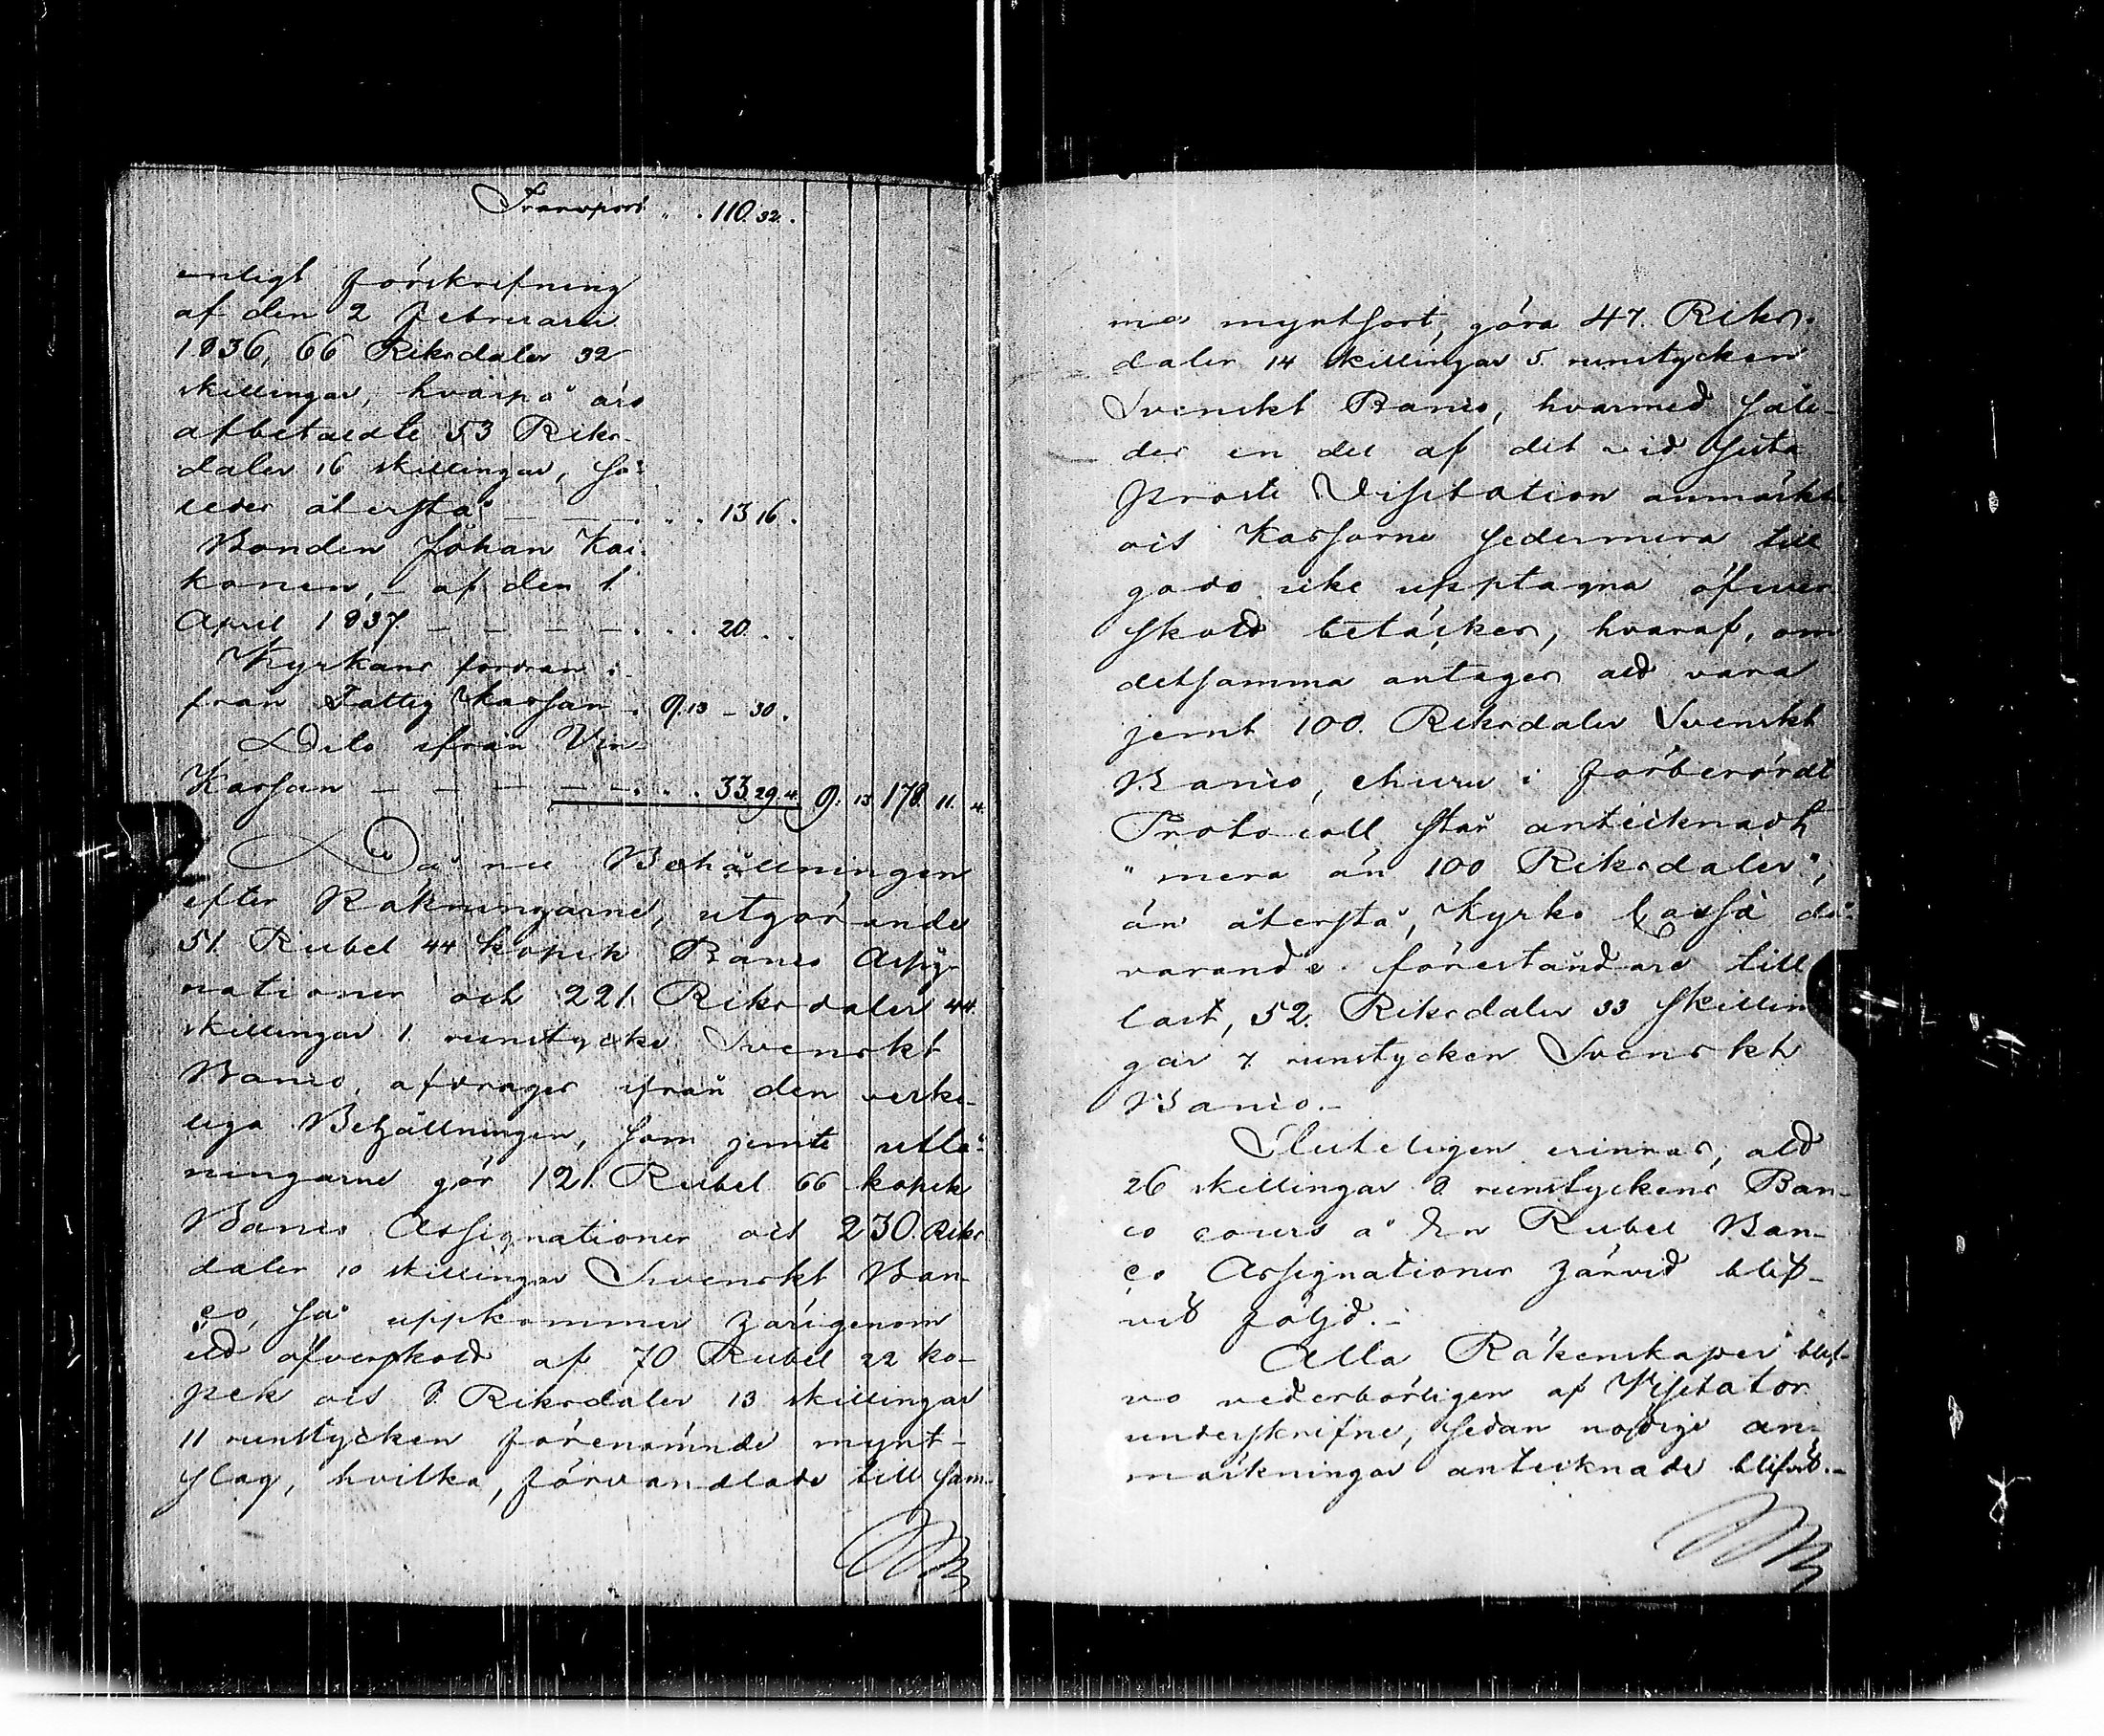 Transport " . 110. 32.
enligt förskrifning
af den 2 Februarii
1836, 66 Riksdaler 32
skillingar, hvarpå äro
afbetaldte 53 Riks-
daler 16 skillingar, så-
ledes återstå — — . . . 13 16.
Bonden Johan Kai-
konen, – af den 1
April 1837 — — — — . . . 20. . .
Kyrkans fordran i-
från Fattig Kassan . 9. 13 – 30.
Dito ifrån Vin
Kassan — — — — — . . . 33. 29. 4. 9. 13 178. 11. 4.
Då nu Behållningen
efter Räkningarne, utgörande
51. Rubel 44 kopek Banco Assig-
nationer och 221. Riksdaler 44
skillingar 1. runstycke Svenskt
Banco, afdrages ifrån den verke-
liga Behållningen, som jemte utlå-
ningarne gör 121. Rubel 66 kopek
Banco Assignationer och 230. Riks
daler 10 skillingar Svenskt Ban-
co, så uppkommer härigenom
ett öfverskott af 70 Rubel 22 ko-
pek och 8. Riksdaler 13 skillingar
11 runstycken förenämnde mynt-
slag, hvilka, förvandlade till sam-
ma myntsort, göra 47. Riks-
daler 14 skillingar 5. runstycken
Svenskt Banco, hvarmed såle-
des en del af det vid sista
Prosts Visitation anmärkte
och Kassorne sedermera till
godo icke upptagna öfwer
skott betäckes, hvaraf, om
detsamma antages att vara
jemt 100. Riksdaler Svenskt
Banco, ehuru i förberördt
Protocoll står antecknadt
" mera än 100 Riksdaler",
än återstå, Kyrko Cassa då
varande föreståndare till
last, 52. Riksdaler 33 skillin
gar 7. runstycken Svenskt
Banco.–
Sluteligen erinras, att
26 skillingar 8. runstyckens Ban-
co cours å En Rubel Ban-
co Assignationer härvid blif-
vit följd.–
Alla Räkenskaper blef-
vo vederbörligen af Visitator
underskrifne, sedan nödige an-
märkningar antecknade blifvit.–